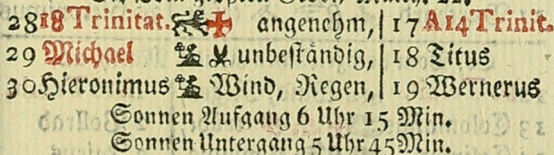 28 18 Trinitat. angenehm, 17 A14 Trinit.
29 Michael unbeſtändig, 18 Titus
30 Hieronimus Wind, Regen, 19 Wernerus
Sonnen Aufgang 6 Uhr 15 Min.
Sonnen Untergang 5 Uhr 45 Min.